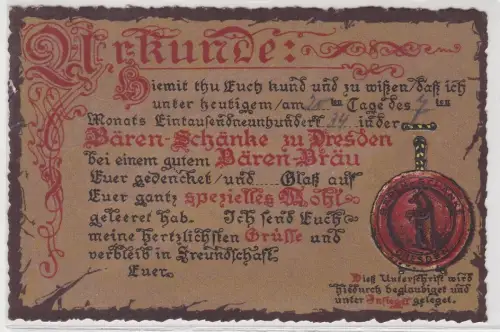 Urkunde:
Hiemit thu Euch kund und zu wißen/daß ich
unter heutigem/am 20 ten Tage des 7 ten
Monats Eintausendneunhundert 34 in der
Bären-Schänke zu Dresden
bei einem gutem Bären-Bräu
Euer gedencket/und .... Glaß auf
Euer gantz spezielles Wohl
geleeret hab. Ich send Euch
meine hertzlichsten Grüße und
verbleib in Freundschaft
Euer
Dieß Unterschrift wird
hiedurch beglaubiget und
unter Insiegel geleget.